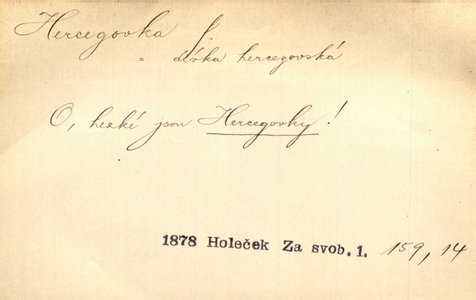 Hercegovka f.
" dívka hercegovská
O, hezké jsou Hercegovky!
1878 Holeček Za svob. 1. 159, 14